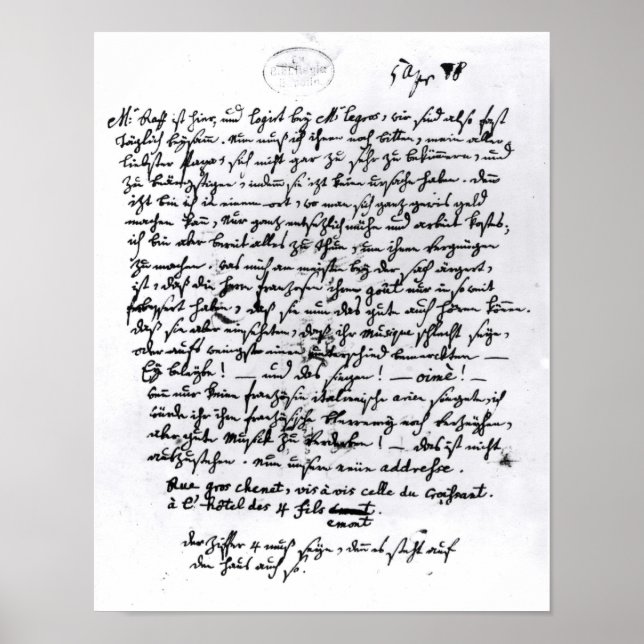 5 Apr 78
Mr: Raff ist hier, und logirt bey Mr: legros, wir sind also fast
täglich beysamm. Nun muß ich ihnen noch bitten, mein aller
liebster Papa, sich nicht gar zu sehr zu bekümmern, und
zu beängstigen, indemm sie izt keine ursache haben. denn
izt bin ich in einem ort, wo man sich ganz gewis geld
machen kann, Nur ganz entsezlich mühe und arbeit kostets;
ich bin aber bereit alles zu thun, um ihnen vergnügen
zu machen. was mich am meisten bey der sach ärgert,
ist, daß die Herrn franzosen ihren goût nur in so weit
verbessert haben, daß sie nun das gute auch hören können.
daß sie aber einseheten, daß ihr Musique schlecht seye,
oder aufs wenigste einen unterschied bemerckten —
Ey beleybe! — und das singen! — oimè! —
wenn nur keine französin italienische arien singete, ich
würde ihr ihre französische Plererey noch verzeyhen,
aber gute Musick zu verderben! — das ist nicht
auszustehen. Nun unsere neüe addresse.
Rue gros chenet, vis à vis celle du Croissant.
à l'hôtel des 4 fils
emont
der ziffer 4 muß seye, denn es steht auf
den haus auch so.